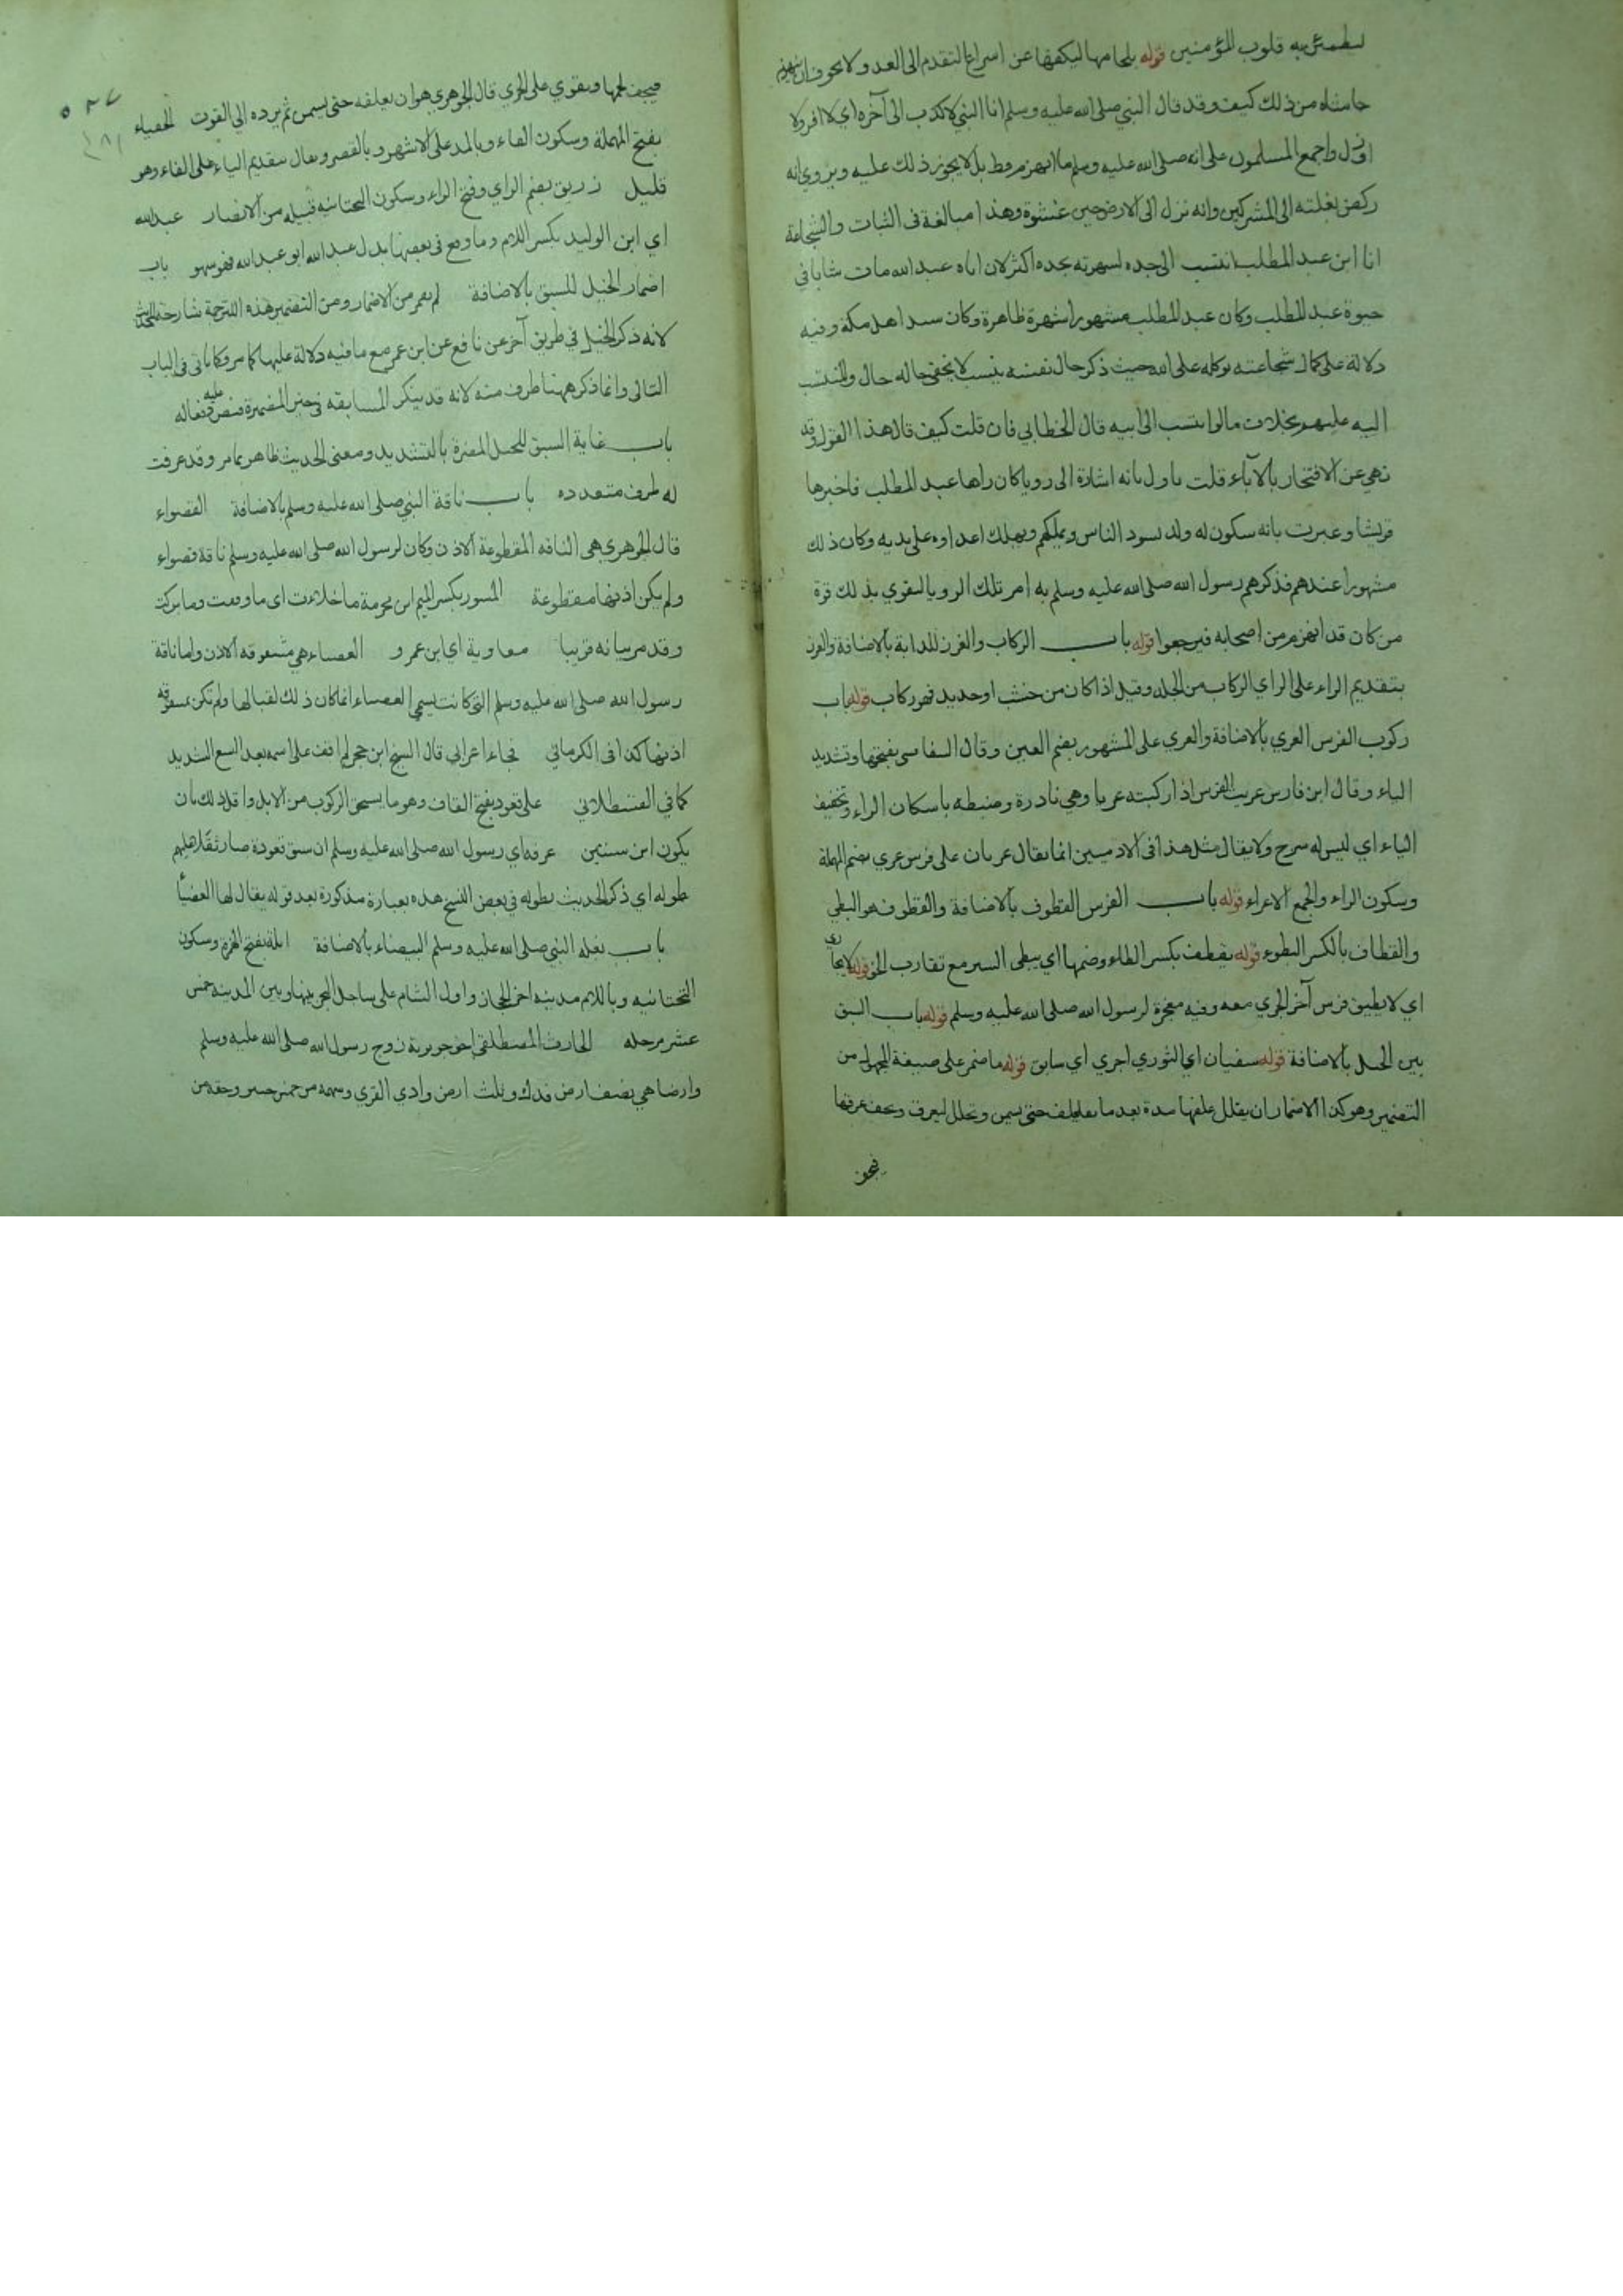 لتطمئن به قلوب المؤمنين قوله بلجامها ليكفها عن اسراع التقدم الى العدو ولا يخوف ان ينهزم
حاشاه من ذلك كيف وقد قال النبي صلى الله عليه وسلم انا النبي لا كذب الى آخره اي لا افر ولا
ازول واجمع المسلمون على انه صلى الله عليه وسلم ما انهزم قط بل لا يجوز ذلك عليه ويروى انه
ركض بغلته الى المشركين وانه نزل الى الارض حين غشوة وهذا مبالغة في الثبات والشجاعة
انا ابن عبد المطلب انتسب الى جده لشهرته بجده اكثر لان اباه عبد الله مات شابا في
حيوة عبد المطلب وكان عبد المطلب مشهورا شهرة ظاهرة وكان سيد اهل مكة وفيه
دلالة على كمال شجاعته توكله على الله حيث ذكر حال نفسه بنسب لا يخفى حاله حال والمنتسب
اليه عليهم بخلاف ما لو انتسب الى ابيه قال الخطابي فان قلت كيف قال هذا القول وقد
نهي عن الافتخار بالآباء قلت ياول بانه اشارة الى رويا كان راها عبد المطلب فاخبرها
قريشا وعبرت بانه سيكون له ولد يسود الناس ويملكهم ويهلك اعداوه على يديه وكان ذلك
مشهورا عندهم فذكرهم رسول الله صلى الله عليه وسلم به امر تلك الرويا ليقوي بذلك قوة
من كان قد انهزم من اصحابه فيرجعوا قوله باب الركاب والغرز للدابة بالاضافة والغرز
بتقديم الراء على الزاي الركاب من الجلد وقيل اذا كان من خشب او حديد فهو ركاب قوله باب
ركوب الفرس العري بالاضافة والعري على المشهور بضم العين وقال السفاسي بفتحها وتشديد
الياء وقال ابن فارس عريت الفرس اذا ركبته عريا وهي نادرة وضبطه باسكان الراء وتخفيف
الياء اي ليس له سرج ولا يقال مثل هذا في الادميين انما يقال عريان على فرس عري بضم المهملة
وسكون الراء والجمع الاعراء قوله باب الفرس القطوف بالاضافة والقطوف هو البطي
والقطاف بالكسر البطوء قوله يقطف بكسر الطاء وضمها اي يبطى السير مع تقارب الخطو قوله لا يجارى
اي لا يطيق فرس آخر الجري معه وفيه معجزة لرسول الله صلى الله عليه وسلم قوله باب السبق
بين الخيل بالاضافة قوله سفيان اي الثوري اجري اي سابق قوله ما ضمر على صيغة المجهول من
التضمير وهو كذا الاضمار ان يقلل علفها مدة بعد ما يعلف حتى يسمن وتجلل ليعرق ويجف عرقها
فيجف
فيجف لحمها ويقوي على الجري قال الجوهري هو ان يعلفه حتى يسمن ثم يرده الى القوت الحفياء
بفتح المهملة وسكون الفاء وبالمد على الاشهر وبالقصر ويقال بتقديم الياء على الفاء وهو
قليل زريق بضم الزاي وفتح الراء وسكون التحتانيه قبيله من الانصار عبد الله
اي ابن الوليد بكسر اللام وما وقع في بعضها بدل عبد الله ابو عبد الله فهو سهو باب
اضمار الخيل للسبق بالاضافة لم يعر من الاضمار ومن التضمير هذه الترجمة شارحة للحديث
لانه ذكر الخيل في طريق آخر عن نافع عن ابن عمر مع ما فيه دلالة عليها كما مر وكما يأتي في الباب
التالي وانما ذكر ههنا طرف منه لانه قد ينكر المسابقه في خبر المضمرة فنص عليه
باب غاية السبق للخيل المضمرة بالتشديد ومعنى الحديث ظاهر بما مر وقد عرفت
له طرف متعدده باب ناقة النبي صلى الله عليه وسلم بالاضافة القصواء
قال الجوهري هي الناقه المقطوعة الاذن وكان لرسول الله صلى الله عليه وسلم ناقة قصواء
ولم يكن اذنها مقطوعة المسور بكسر الميم ابن مخرمة ما خلأت اى ما وقعت وما بركت
وقد مر بيانه قريبا معاوية اي ابن عمرو العضباء هي مشقوقه الاذن واما ناقة
رسول الله صلى الله عليه وسلم التي كانت يسمى العضباء انما كان ذلك لقبا لها ولم تكن مشقوقه
اذنها كذا في الكرماني فجاء اعرابي قال الشيخ ابن حجر لم اقف على اسمه بعد التتبع الشديد
كما في القسطلاني على قعود بفتح القاف وهو ما يستحق الركوب من الابل واقل ذلك بان
يكون ابن سنتين عرفه اي رسول الله صلى الله عليه وسلم ان سبق قعودة صار ثقلا عليهم
طوله اي ذكر الحديث بطوله في بعض النسخ هذه بعبارة مذكورة بعد قوله يقال لها العضبأ
باب بغله النبي صلى الله عليه وسلم البيضاء بالاضافة ايلة بفتح الهمزه وسكون
التحتانيه وباللام مدينه اخر الحجاز واول الشام على ساحل البحر بينها وبين المدينه خمس
عشر مرحله الحارث المصطلقى اخو جويرية زوج رسول الله صلى الله عليه وسلم
وارضا هي نصف ارض فدك وثلث ارض وادي القري وسهمه من خمس خيبر وحقه من